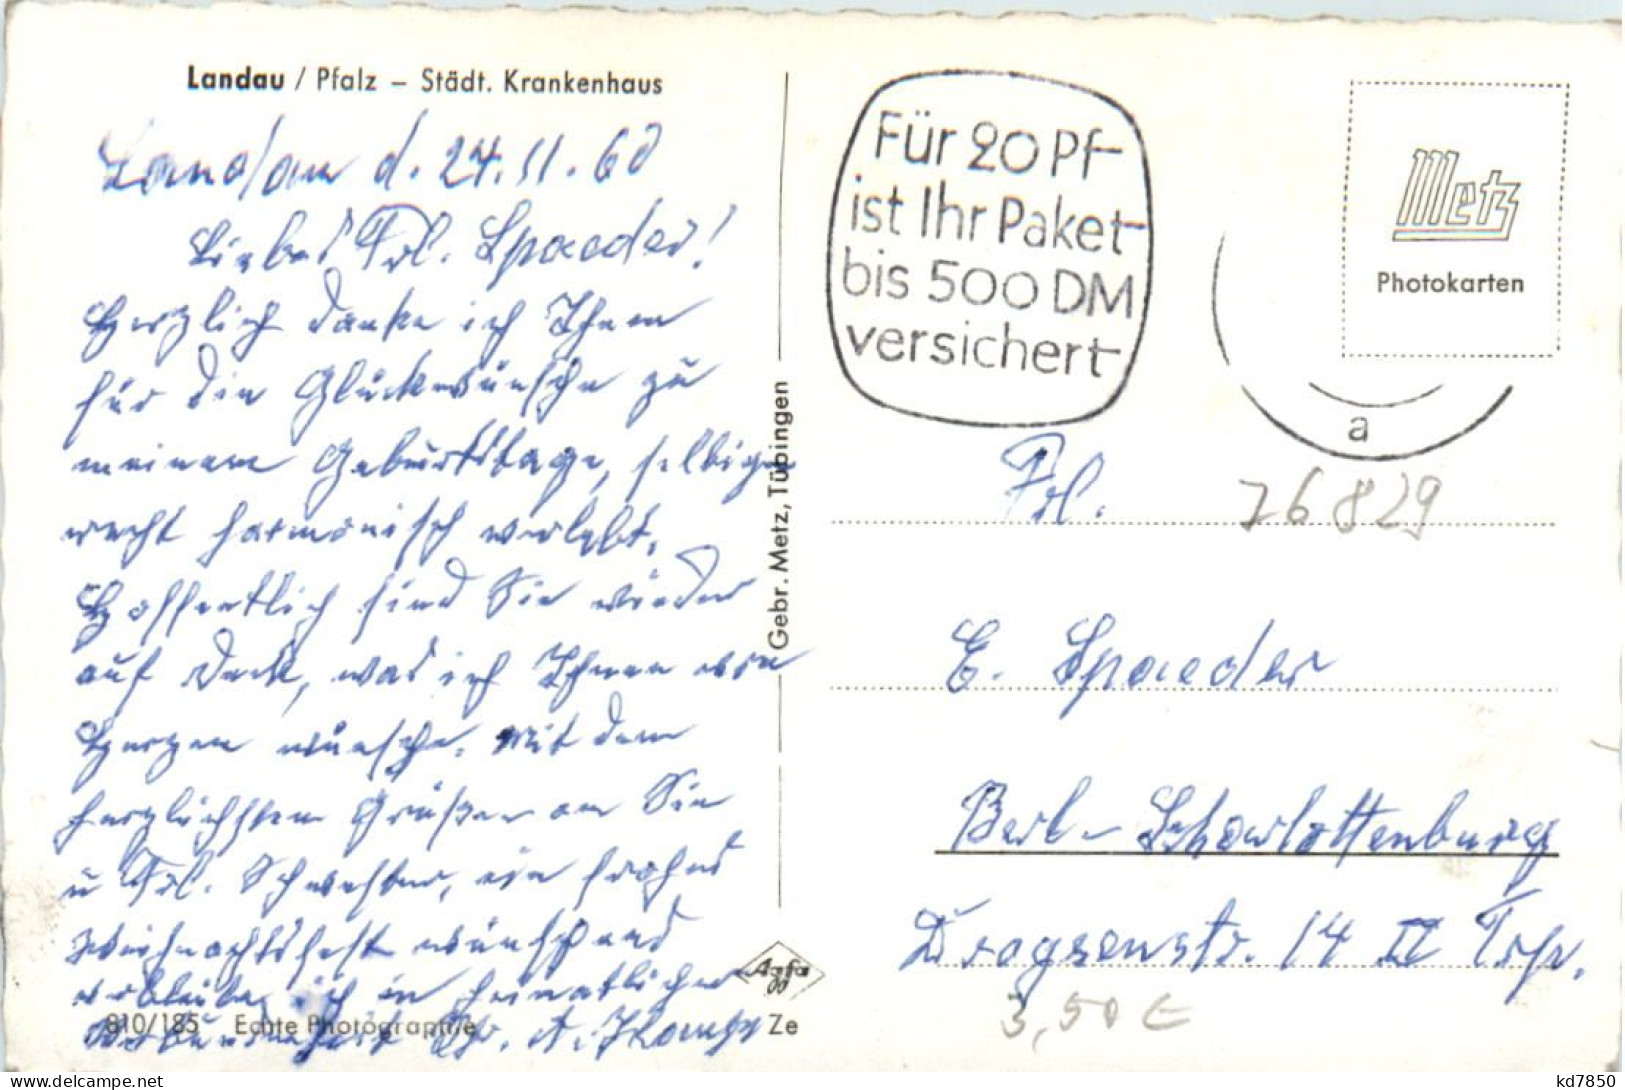 Landau / Pfalz – Städt. Krankenhaus
Landau d. 24.11.60
Liebes Frl. Spaeder!
Herzlich danke ich Ihnen
für die Glückwünsche zu
meinem Geburtstage, selbigen
recht harmonisch verlebt.
Hoffentlich sind Sie wieder
auf Deck, was ich Ihnen von
Herzen wünsche. Mit den
herzlichsten Grüßen an Sie
u Frl. Schwester, ein frohes
Weihnachtsfest wünschend
verbleibe ich in heimatlicher
Verbundenheit
810/185 Echte Photographie
Gebr. Metz, Tübingen
Agfa
Ze
Für 20 Pf
ist Ihr Paket
bis 500 DM
versichert
Metz
Photokarten
a
Frl.
76829
E. Spaeder
Berl-Scharlottenburg
14 II Trp.
3,50 €
kd7850